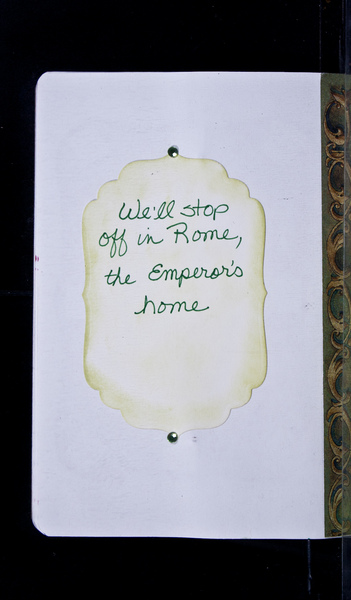 We'll stop
off in Rome,
the Emperor's
home